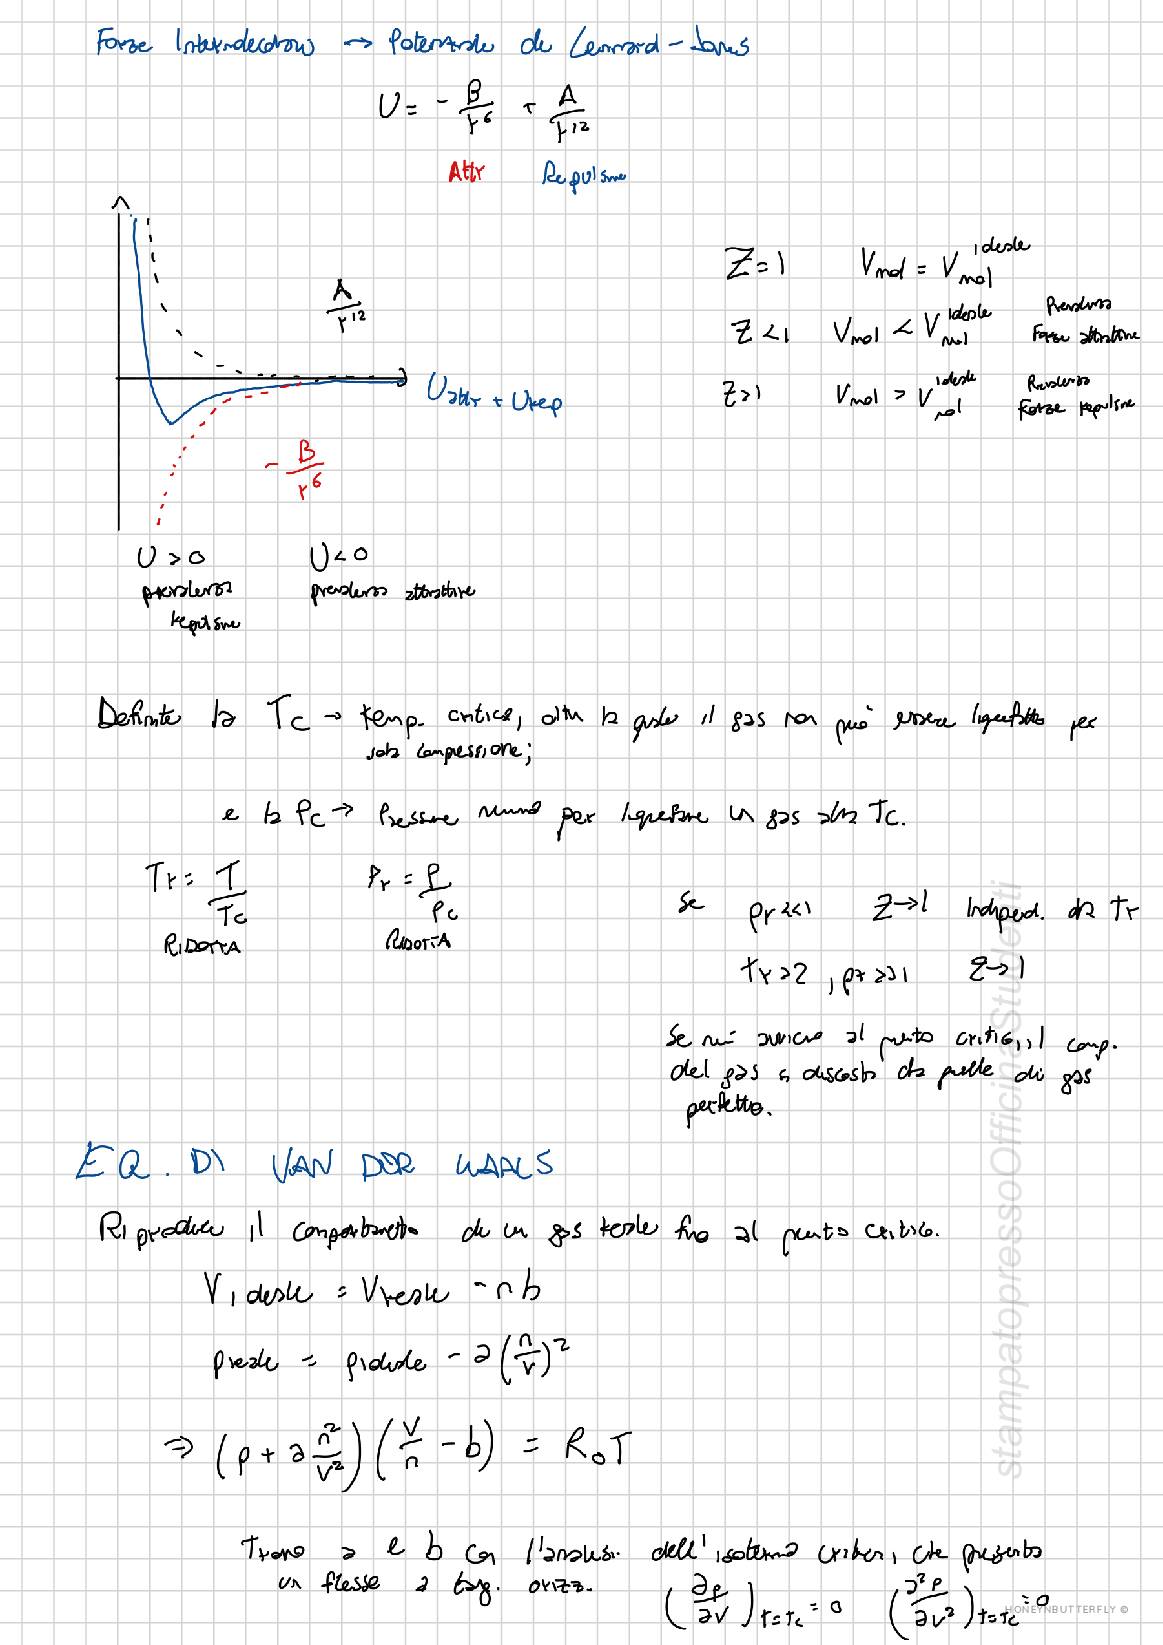 Forze Intermolecolari → Potenziale di Lennard-Jones
U = - B/r⁶ + A/r¹²
Attr Repulsive
A/r¹²
Uattr + Urep
- B/r⁶
Z=1 Vmol = Vmol ideale
Z<1 Vmol < Vmol ideale Prevalenza Forze attrattive
Z>1 Vmol > Vmol ideale Prevalenza Forze repulsive
U > 0 U < 0
prevalenza prevalenza attrattive
repulsive
Definite la Tc → temp. critica, oltre la quale il gas non può essere liquefatto per
sola compressione;
e la Pc → Pressione minima per liquefare un gas alla Tc.
Tr = T/Tc Pr = P/Pc
RIDOTTA RIDOTTA
Se pr<<1 Z→1 Indipend. da Tr
Tr>2 , pr>>1 Z→1
Se mi avvicino al punto critico, il comp.
del gas si discosta da quello di gas
perfetto.
EQ. DI VAN DER WAALS
Riproduce il comportamento di un gas reale fino al punto critico.
Videale = Vreale - nb
preale = pideale - a(n/V)²
⇒ (p + a n²/V²)(V/n - b) = R₀T
Trovo a e b con l'analisi dell'isoterma critica, che presenta
un flesso a tang. orizz. (∂p/∂V)T=Tc = 0 (∂²p/∂V²)T=Tc = 0
stampatopressoOfficinaStudenti
HONEYNBUTTERFLY ©